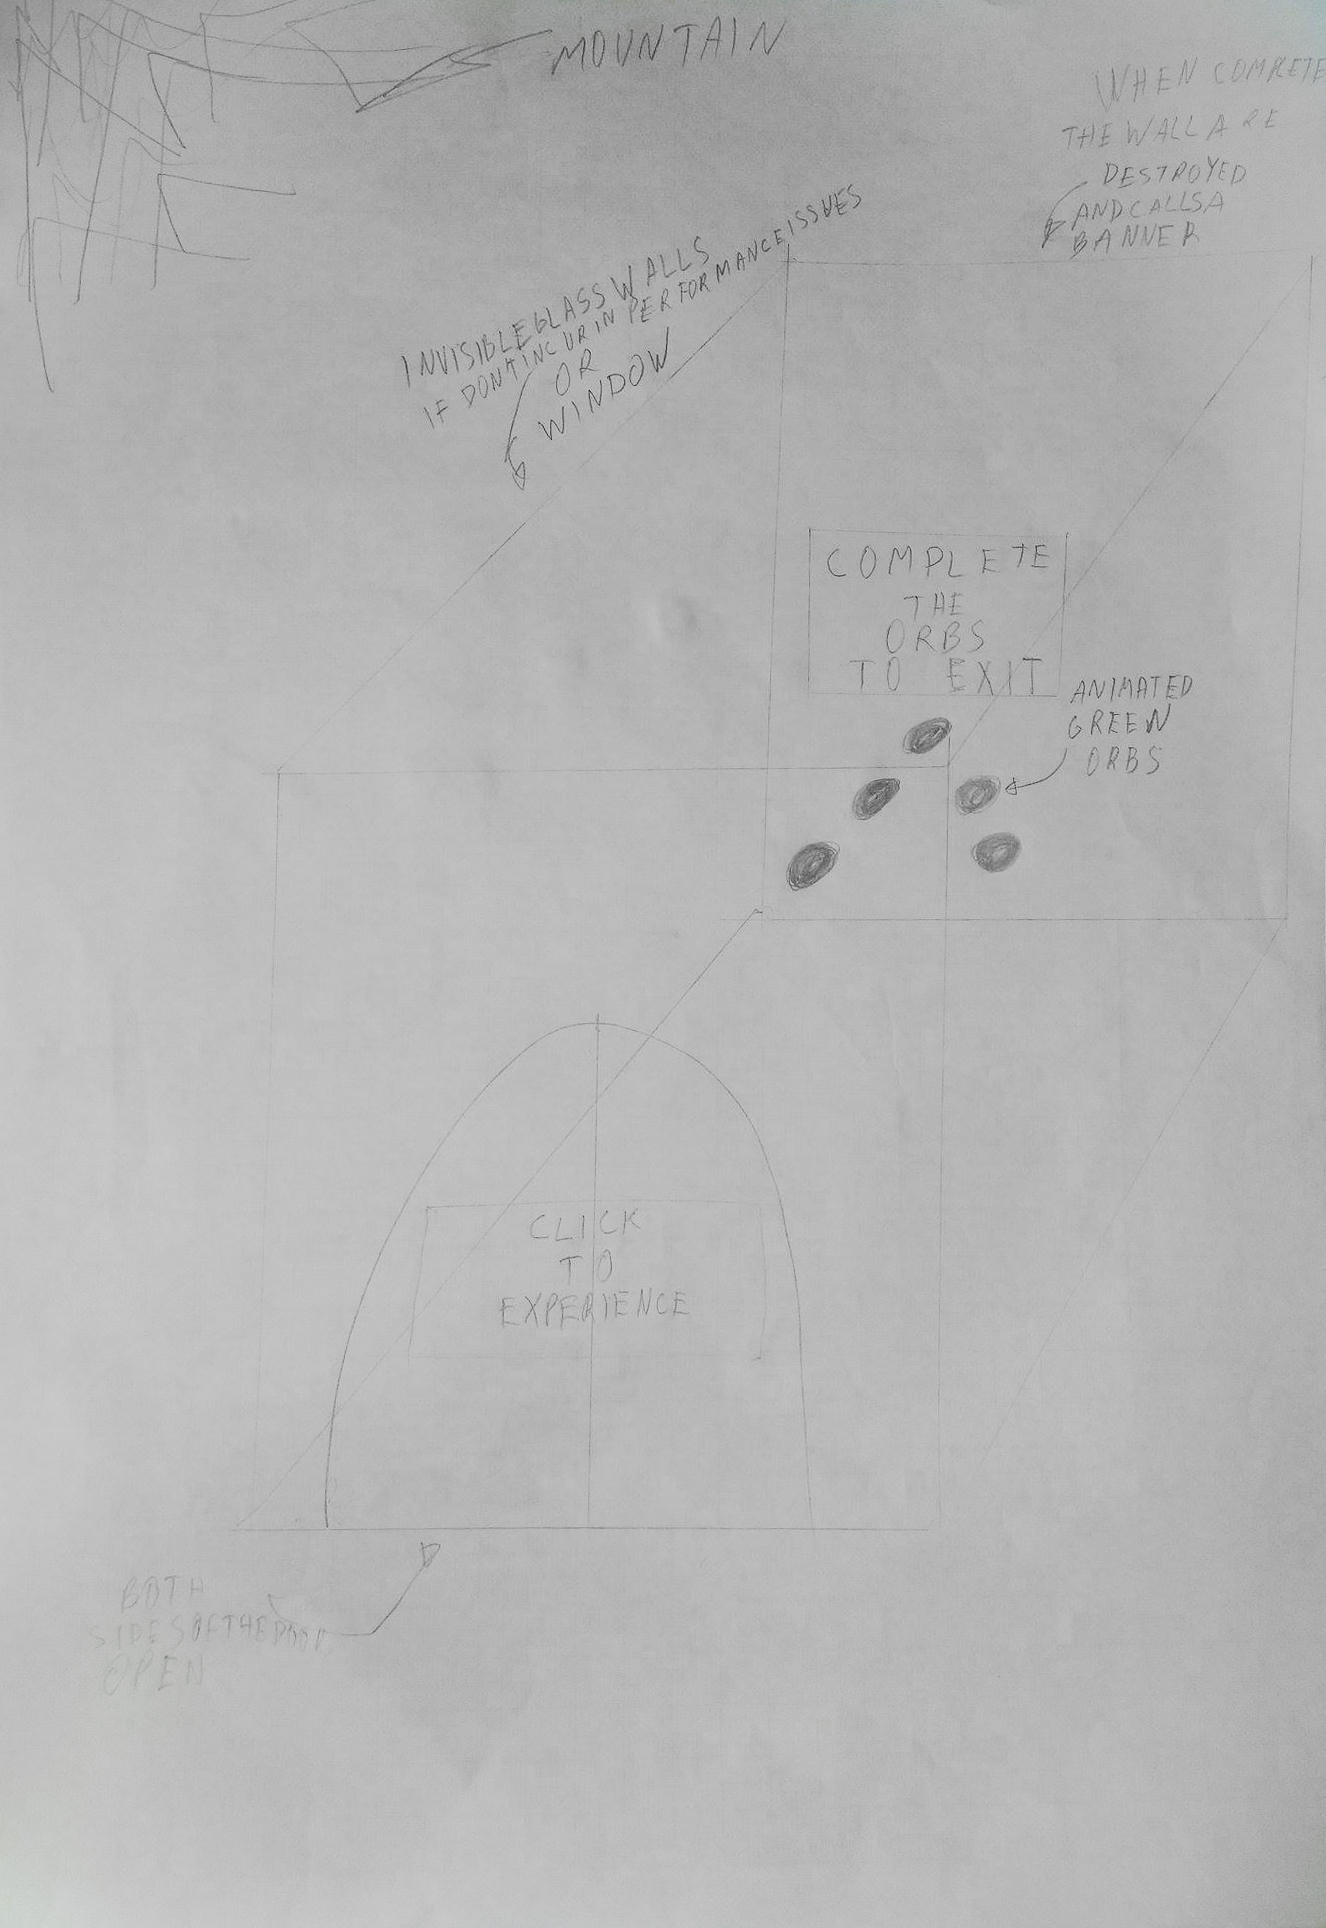 MOUNTAIN
WHEN COMPLETE
THE WALL ARE
DESTROYED
AND CALLS A
BANNER
INVISIBLE GLASS WALLS
IF DONT INCUR IN PERFORMANCE ISSUES
OR
WINDOW
COMPLETE
THE
ORBS
TO EXIT
ANIMATED
GREEN
ORBS
CLICK
TO
EXPERIENCE
BOTH
SIDES OF THE DOOR
OPEN